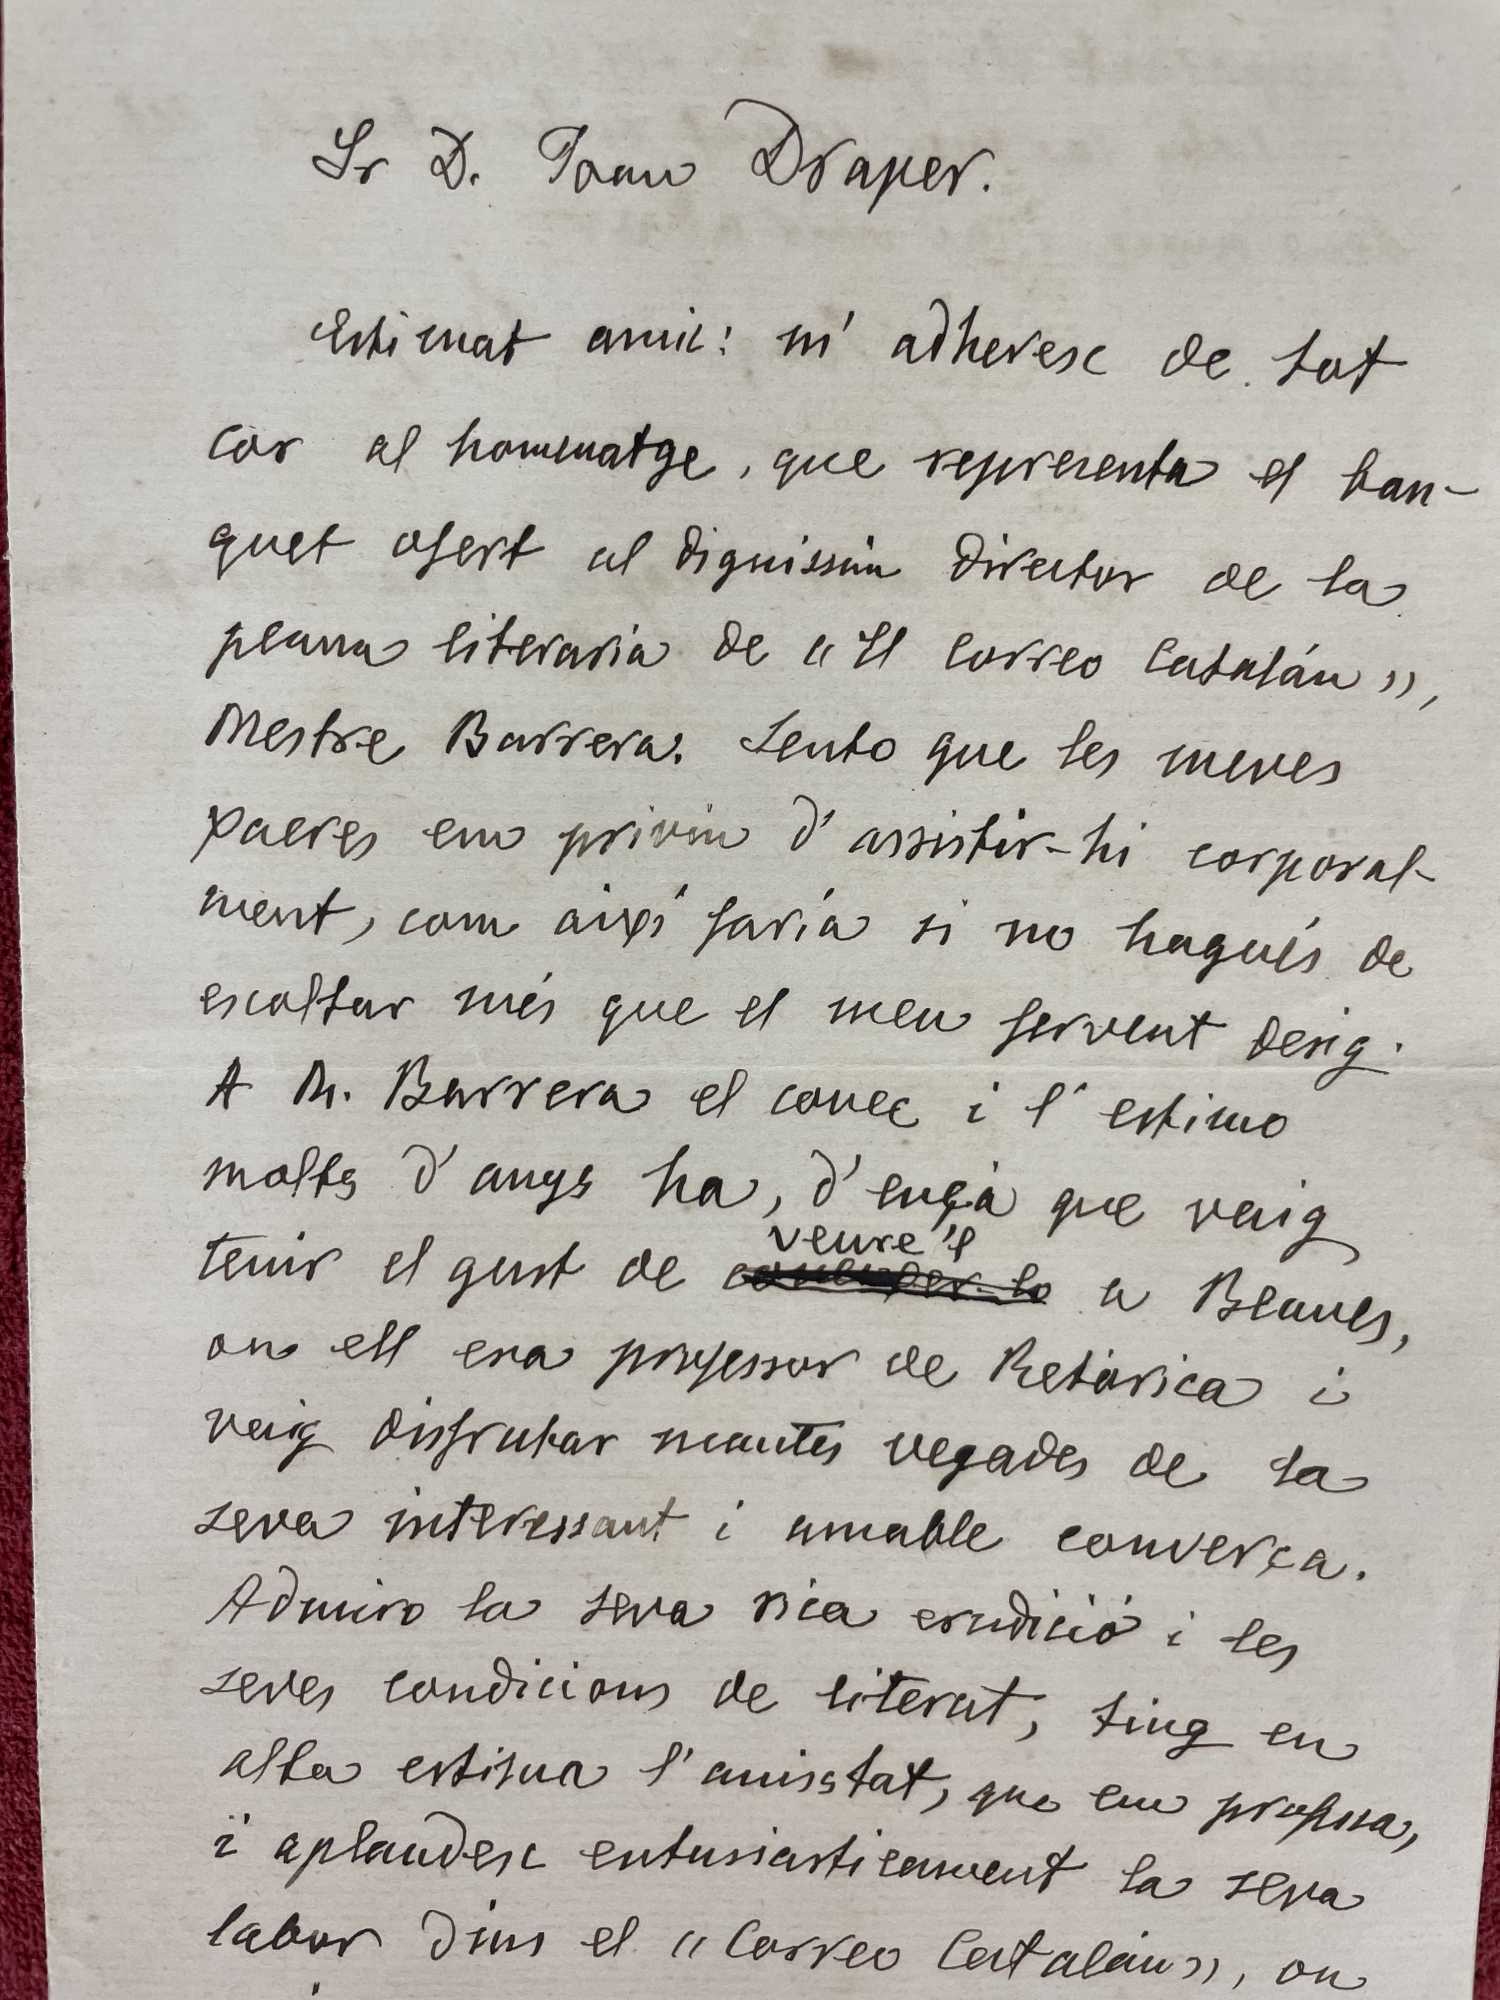 Sr D. Joan Draper.
Estimat amic: m' adheresc de tot
cor al hommatge, que representa el ban-
quet ofert al digníssim director de la
plana literaria de "El Correo Catalán",
Mestre Barrera. Sento que les meves
em privin d'assistir-hi corporal-
ment, com aixi faría si no hagués de
escoltar més que el meu fervent desig.
A M. Barrera el conec i l'estimo
molts d'anys ha, d'ençà que vaig
tenir el gust de veure'l a Blanes,
on ell era professor de Retòrica i
vaig disfrutar mantes vegades de la
seva interessant i amable conversa.
Admiro la seva rica erudició i les
seves condicions de literat, tinc en
alta estima l'amisstat, que em professa,
i aplaudesc entusiasticament la seva
labor dins el "Correo Catalán", on